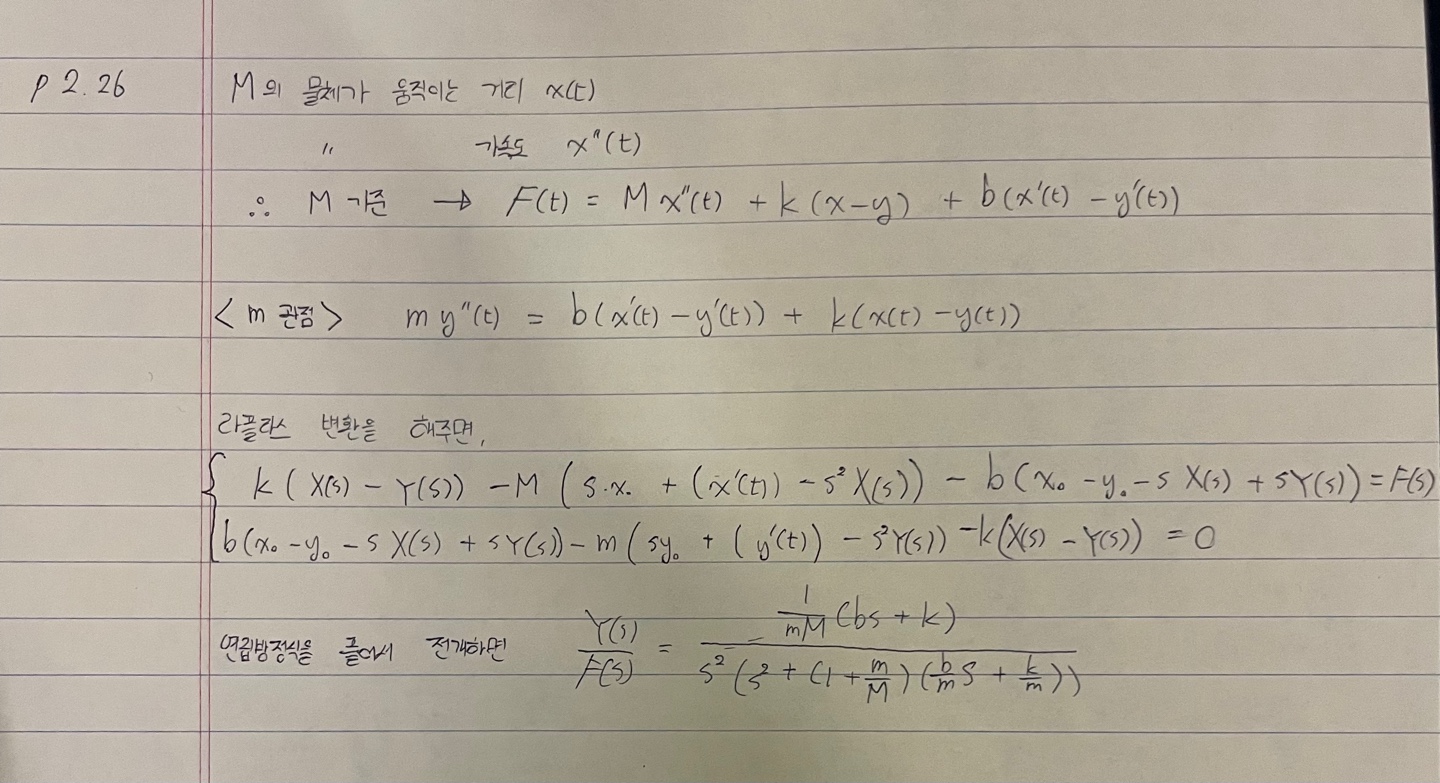 P 2.26 M의 물체가 움직이는 거리 x(t)
〃 가속도 x"(t)
∴ M 기준 → F(t) = M x"(t) + k(x-y) + b(x'(t) - y'(t))
<m 관점> m y"(t) = b(x'(t) - y'(t)) + k(x(t) - y(t))
라플라스 변환을 해주면,
k ( X(s) - Y(s)) - M ( s·x₀ + (x'(t)) - s² X(s)) - b(x₀ - y₀ - s X(s) + sY(s)) = F(s)
b(x₀ - y₀ - s X(s) + sY(s)) - m ( sy₀ + ( y'(t)) - s²Y(s)) - k(X(s) - Y(s)) = 0
연립방정식을 풀어서 전개하면 Y(s)/F(s) = 1/mM (bs + k) / s² (s² + (1 + m/M) (b/m s + k/m))